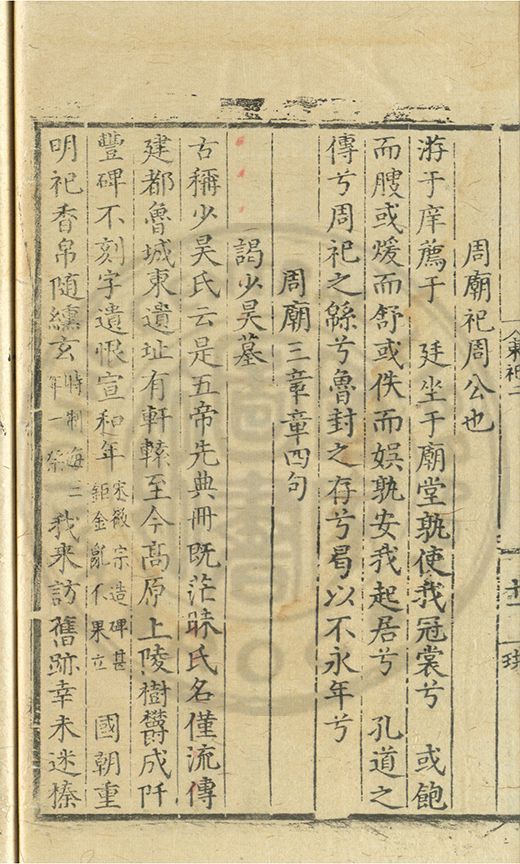 周廟祀周公也
游于庠薦于　廷坐于廟堂孰使我冠裳兮　或飽
而膄或煖而舒或佚而娱孰安我起居兮　孔道之
傳兮周祀之緜兮魯封之存兮曷以不永年兮
周廟三章章四句
謁少昊墓
古稱少昊氏云是五帝先典冊既茫昧氏名僅流傳
建都魯城東遺址有軒轅至今高原上陵樹欝成阡
豐碑不刻字遺恨宣和年宋徽宗造碑甚鉅金亂不果立　國朝重
明祀香帛随纁玄特制每三年一祭我来訪舊跡幸未迷榛